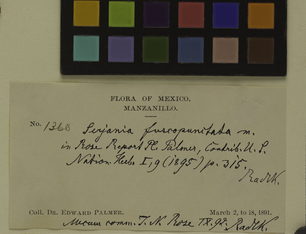 FLORA OF MEXICO.
MANZANILLO.
No. 1360
Serjania fuscopunctata n.
in Rose Report Pl. Palmer, Contrib. U. S.
Nation. Herb. I, 9 (1895) p. 315.
Radlk.
Coll. Dr. Edward Palmer. March 2, to 18, 1891.
mecum comm. J. N. Rose
Radlk.